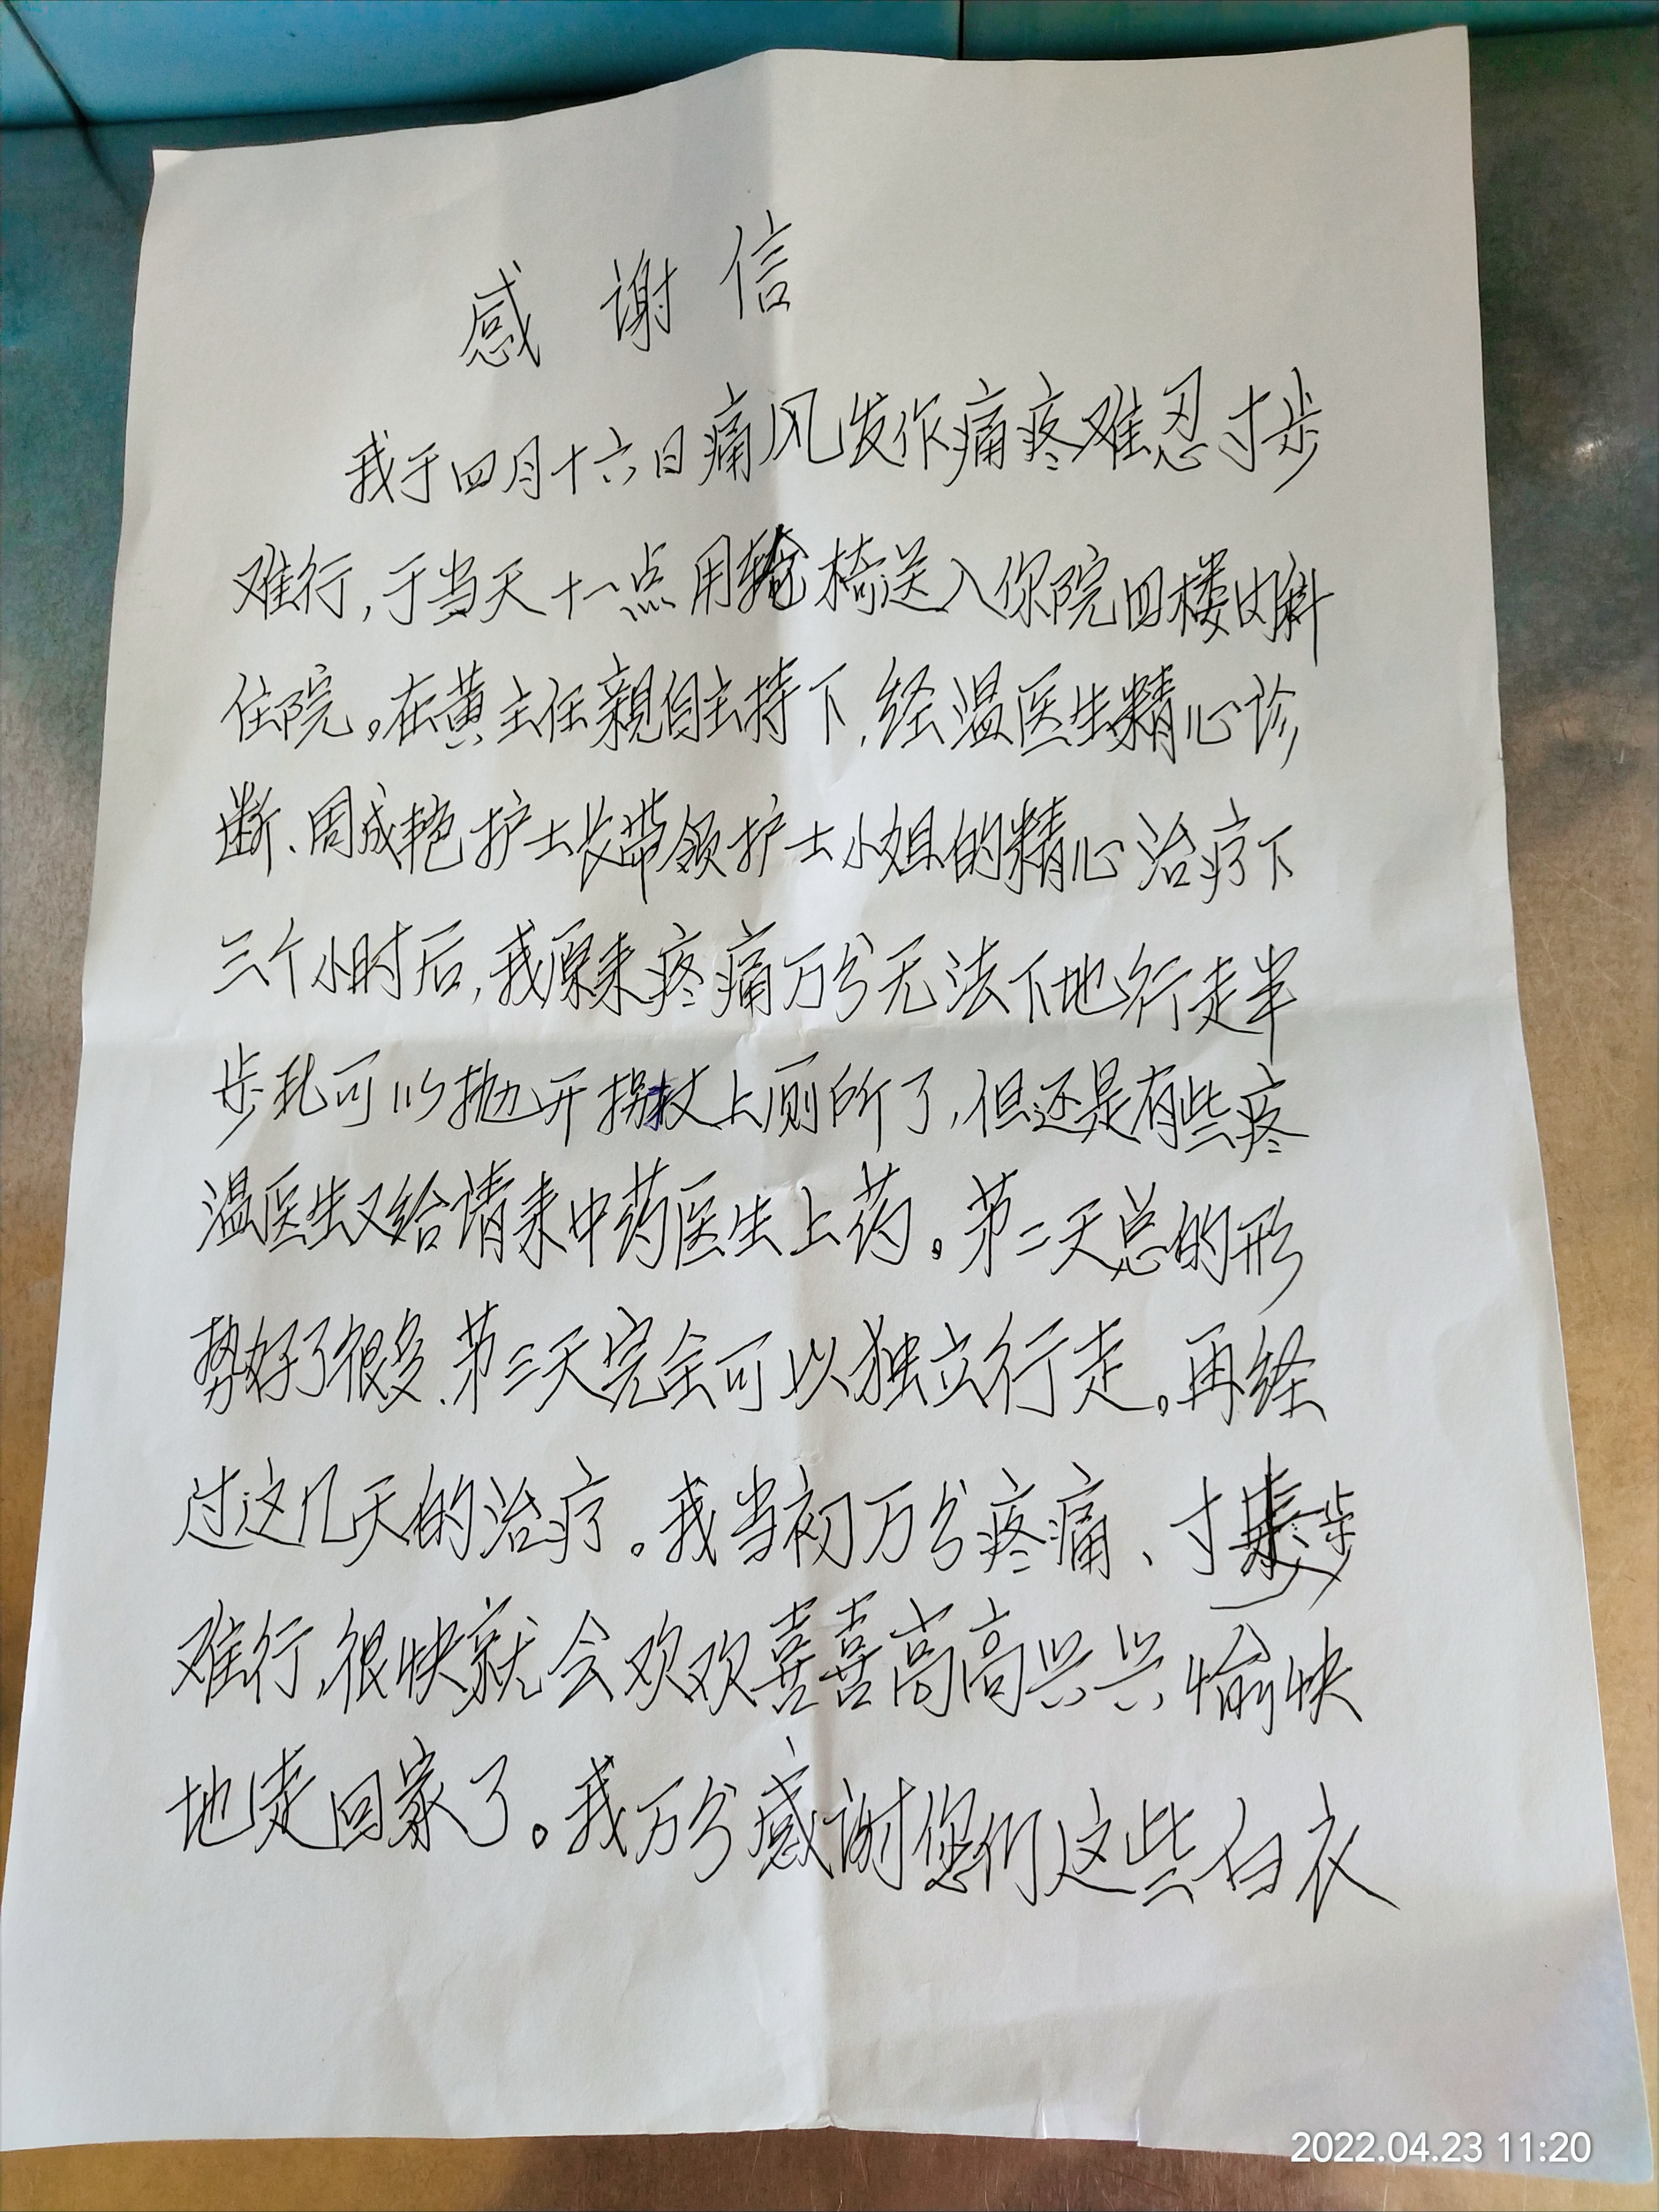 感谢信
我于四月十六日痛风发作痛疼难忍寸步
难行,于当天十一点用轮椅送入你院四楼内科
住院。在黄主任亲自主持下,经温医生精心诊
断、周成艳护士长带领护士小姐的精心治疗下
三个小时后,我原来疼痛万分无法下地行走半
步就可以抛开拐杖上厕所了,但还是有些疼
温医生又给请来中药医生上药。第二天总的形
势好了很多、第三天完全可以独立行走。再经
过这几天的治疗。我当初万分疼痛、寸步
难行,很快就会欢欢喜喜高高兴兴愉快
地走回家了。我万分感谢您们这些白衣
2022.04.23 11:20